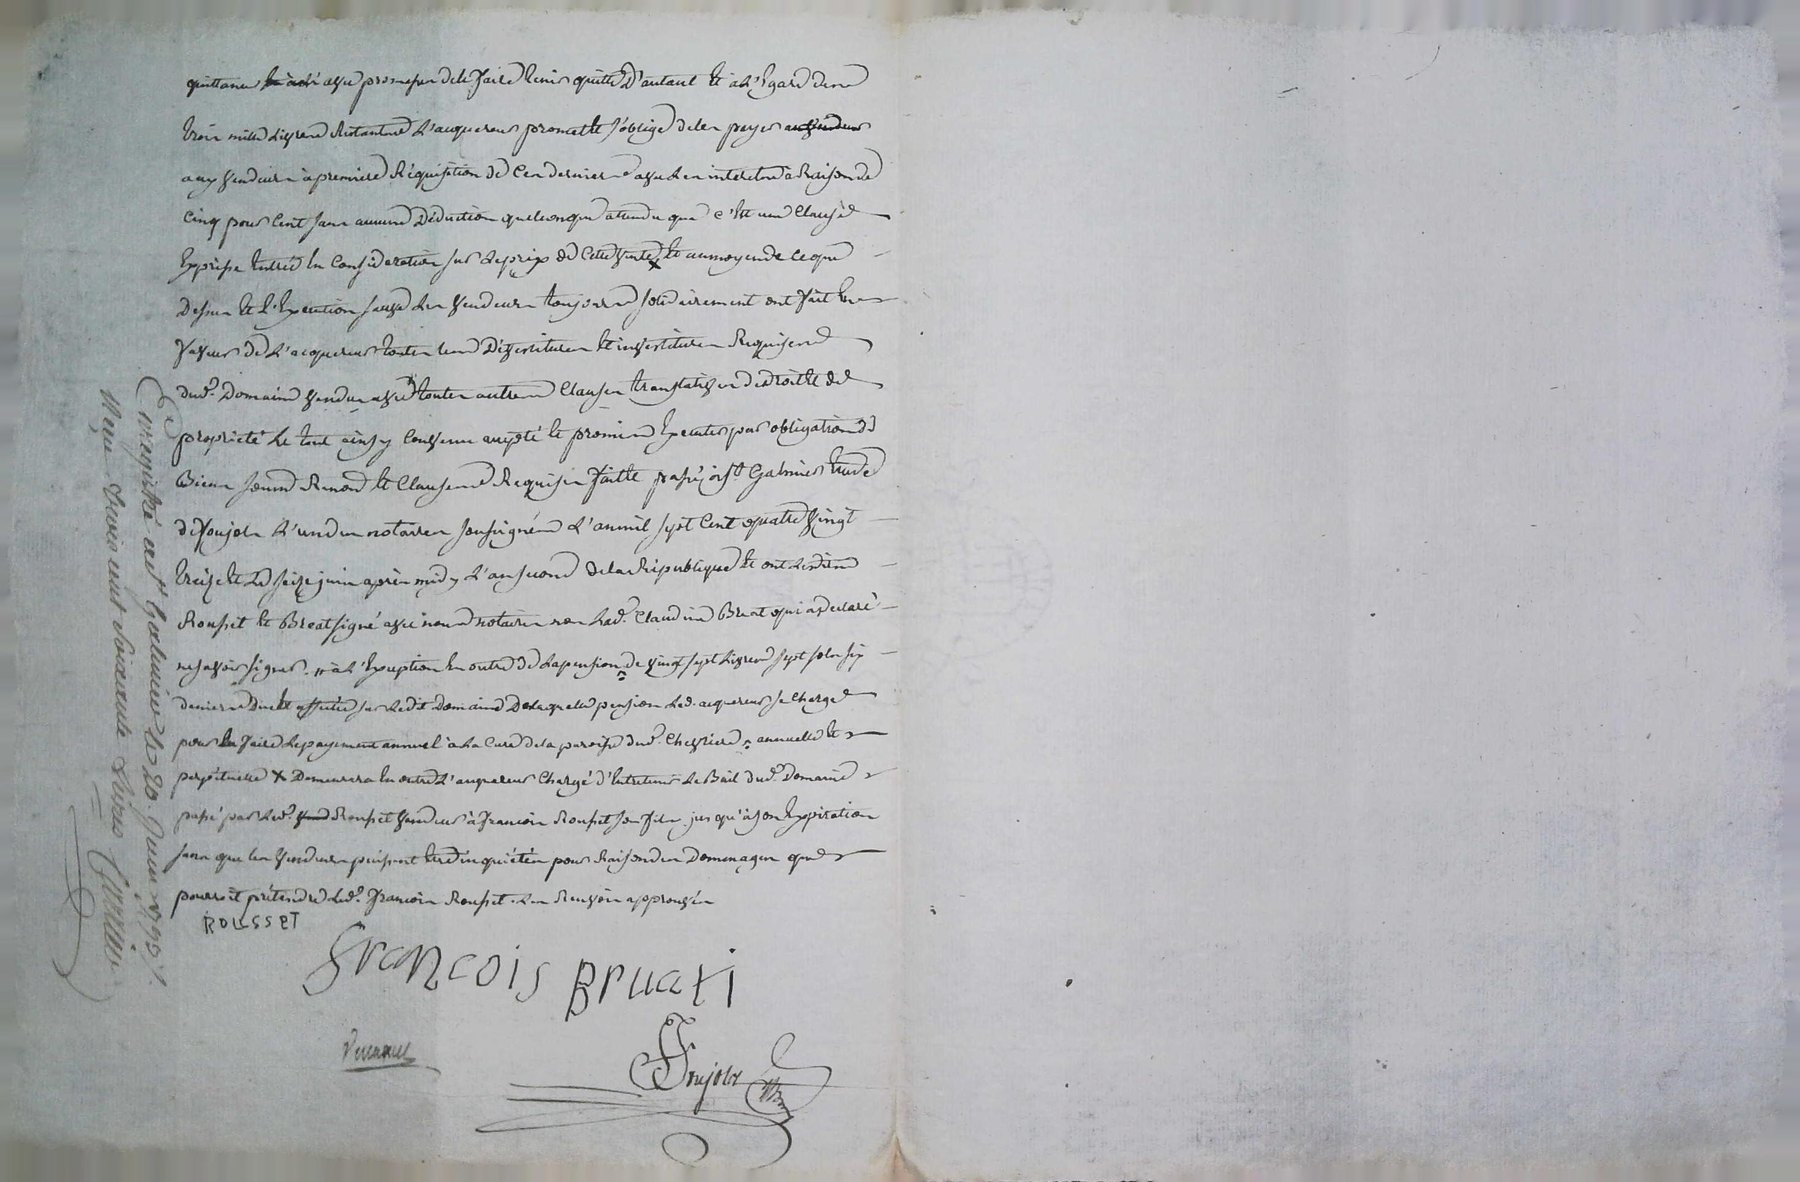 quittance avec promesse de le faire tenir quitte d'autant et à l'egard des
trois mille livres restantes l'acquereur promet et s'oblige de les payer
aux vendeurs à premiere réquisition de ces derniers avec les interets à raison de
cinq pour cent sans aucune déduction quelconque attendu que c'est une clause
expresse entrée en consideration sur le prix de cette vente, et au moyen de ce que
dessus et l'execution sauve les vendeurs toujours solidairement ont fait en
faveur de l'acquereur toutes les dévestitures et investitures requises
dud. domaine vendu avec toutes autres clauses translatives de droit et de
propriété le tout ainsy convenu accepté et promis executer par obligation de
biens soumis renon et clauses requises fait et passé à st Galmier etude
de foujols l'un des notaires soussignés l'an mil sept cent quatre vingt
treize et le seize juin après midy l'an second de la République et ont lesdits
Rousset et Bréat signé avec nous notaires non lad. Claudine Bréat qui a déclaré
ne savoir signer. à l'exception en outre de la pension de vingt sept livres sept sols six
deniers due et affectée sur ledit domaine de laquelle pension led. acquereur se charge
pour en faire le payement annuel à la cure de la paroisse dud. Chevrieres annuelle et
perpétuelle x demeurera en outre l'acquereur chargé d'entretenir le bail dud. domaine
passé par led. Rousset vendeur à francois Rousset son fils jusqu'à son expiration
sans que les vendeurs puissent etre inquiétés pour raison des dommages que
pourroit prétendre led. francois Rousset. les renvois approuvés
ROUSSET
francois Bruati
foujols
Enregistré a st Galmier le 20. Juin 1793.
Reçu trois cent soixante livres